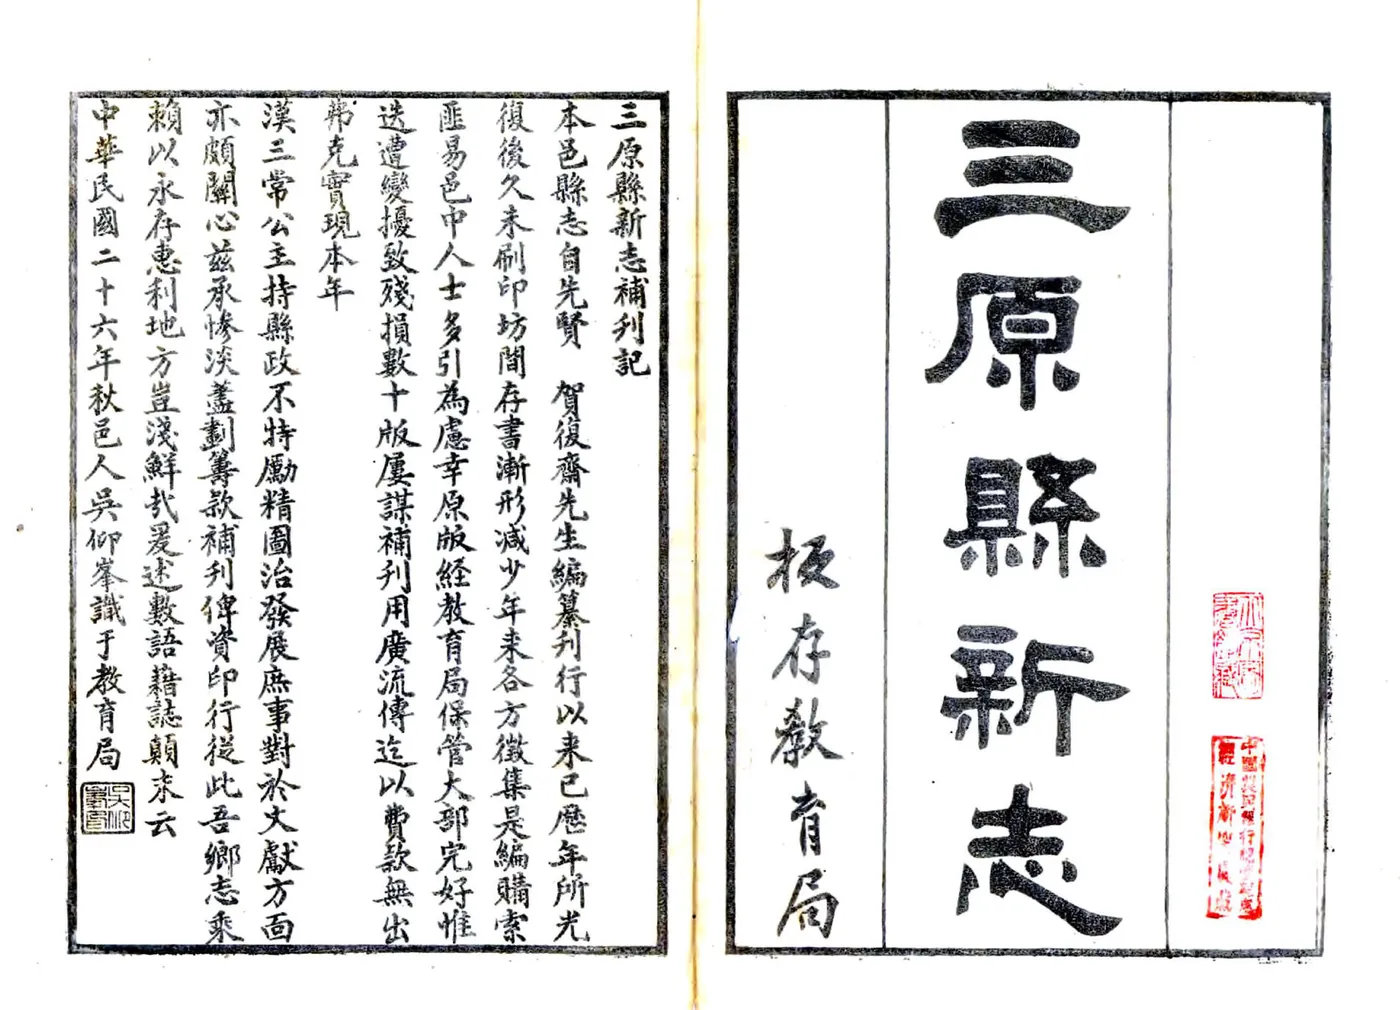 三原縣新志
板存教育局
三原縣新志補刋記
本邑縣志自先賢　賀復齋先生編纂刋行以来已歷年所光
復後久未刷印坊間存書漸形減少年来各方徵集是編購索
匪易邑中人士多引為慮幸原版經教育局保管大部完好惟
迭遭變擾致殘損數十版屢謀補刋用廣流傳迄以費款無出
弗克實現本年
漢三常公主持縣政不特勵精圖治發展庶事對於文獻方面
亦頗關心兹承慘淡藎劃籌款補刋俾資印行從此吾鄉志乘
賴以永存惠利地方豈淺鮮哉爰述數語藉誌顛末云
中華民國二十六年秋邑人吳仰峯識于教育局